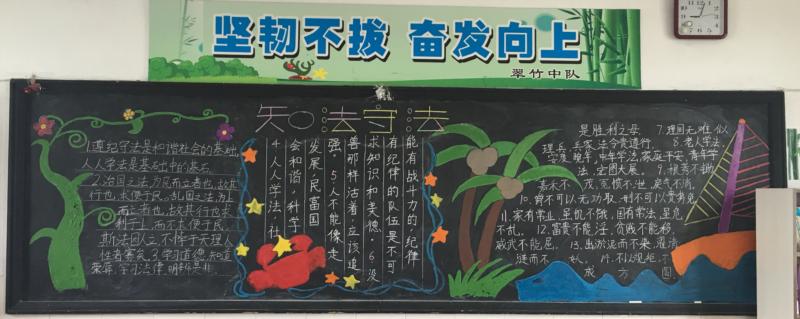 坚韧不拔 奋发向上
翠竹中队
知法守法
1.遵纪守法是和谐社会的基础,
人人学法是基础中的基石.
2.治国之法,为民而立者也,故其
行也,求便于民。乱国之法,为上
而立者也,故其行也,求
利于上而不求便于民。
斯法因人之不惮于天理人
性者害矣 3.学习道德,知道
荣辱,学习法律,明辨是非
4.人人学法,社
会和谐,科学
发展,民富国
强。5.人不能像走
兽那样活着,应该追
求知识和美德。6.没
有纪律的队伍是不可
能有战斗力的;纪律
是胜利之母 7.理国无难似
理兵,兵家法令贵遵行. 8.老人学法,
安度晚年,中年学法,家庭平安,青年学
法,宏图大展. 9.根不拔
不茂,不除,戾气不消.
10.赏不可以无功取,刑不可以贵势免
11.家有常业,虽饥不饿,国有常法,虽危
不乱. 12.富贵不能淫,贫贱不能移,
威武不能屈. 13.出淤泥而不染,濯清
涟而不妖. 14.不以规矩,不
成方圆